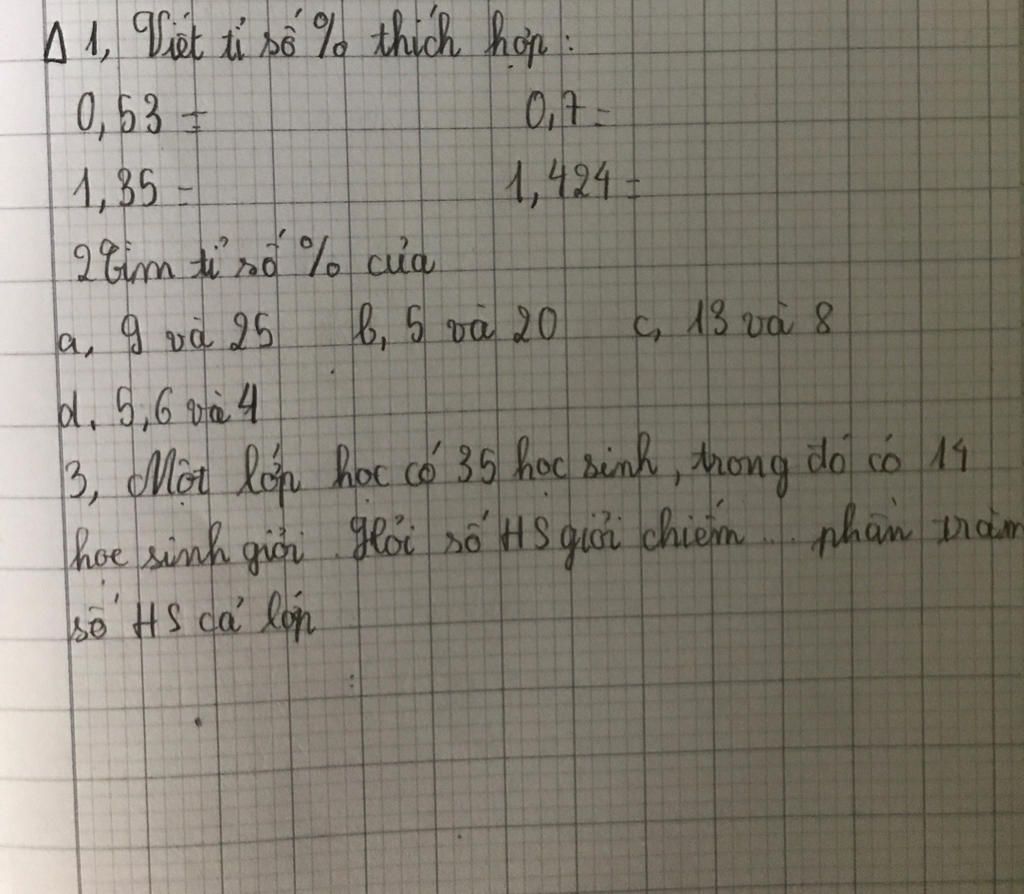 1, Viết tỉ số % thích hợp:
0,53 = 0,7 =
1,35 = 1,424 =
2 Tìm tỉ số % của
a, 9 và 25 b, 5 và 20 c, 13 và 8
d. 5,6 và 4
3, Một lớp học có 35 học sinh, trong đó có 14
học sinh giỏi. Hỏi số HS giỏi chiếm... phần trăm
số HS cả lớp